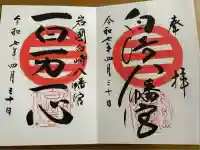 奉拝
白崎八幡宮
令和七年四月三十日
岩国白崎八幡宮
百万一心
令和七年四月三十日